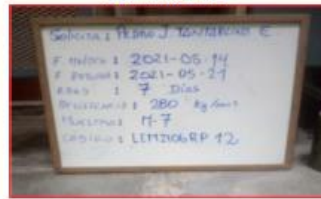 Solicita : PEDRO J. TANTARUNO E
F. : 2021-05-14
F. ROTURA : 2021-05-21
EDAD : 7 Días
RESISTENCIA : 280 kg/cm²
MUESTRA : M-7
CODIGO : LEM2106RP 12